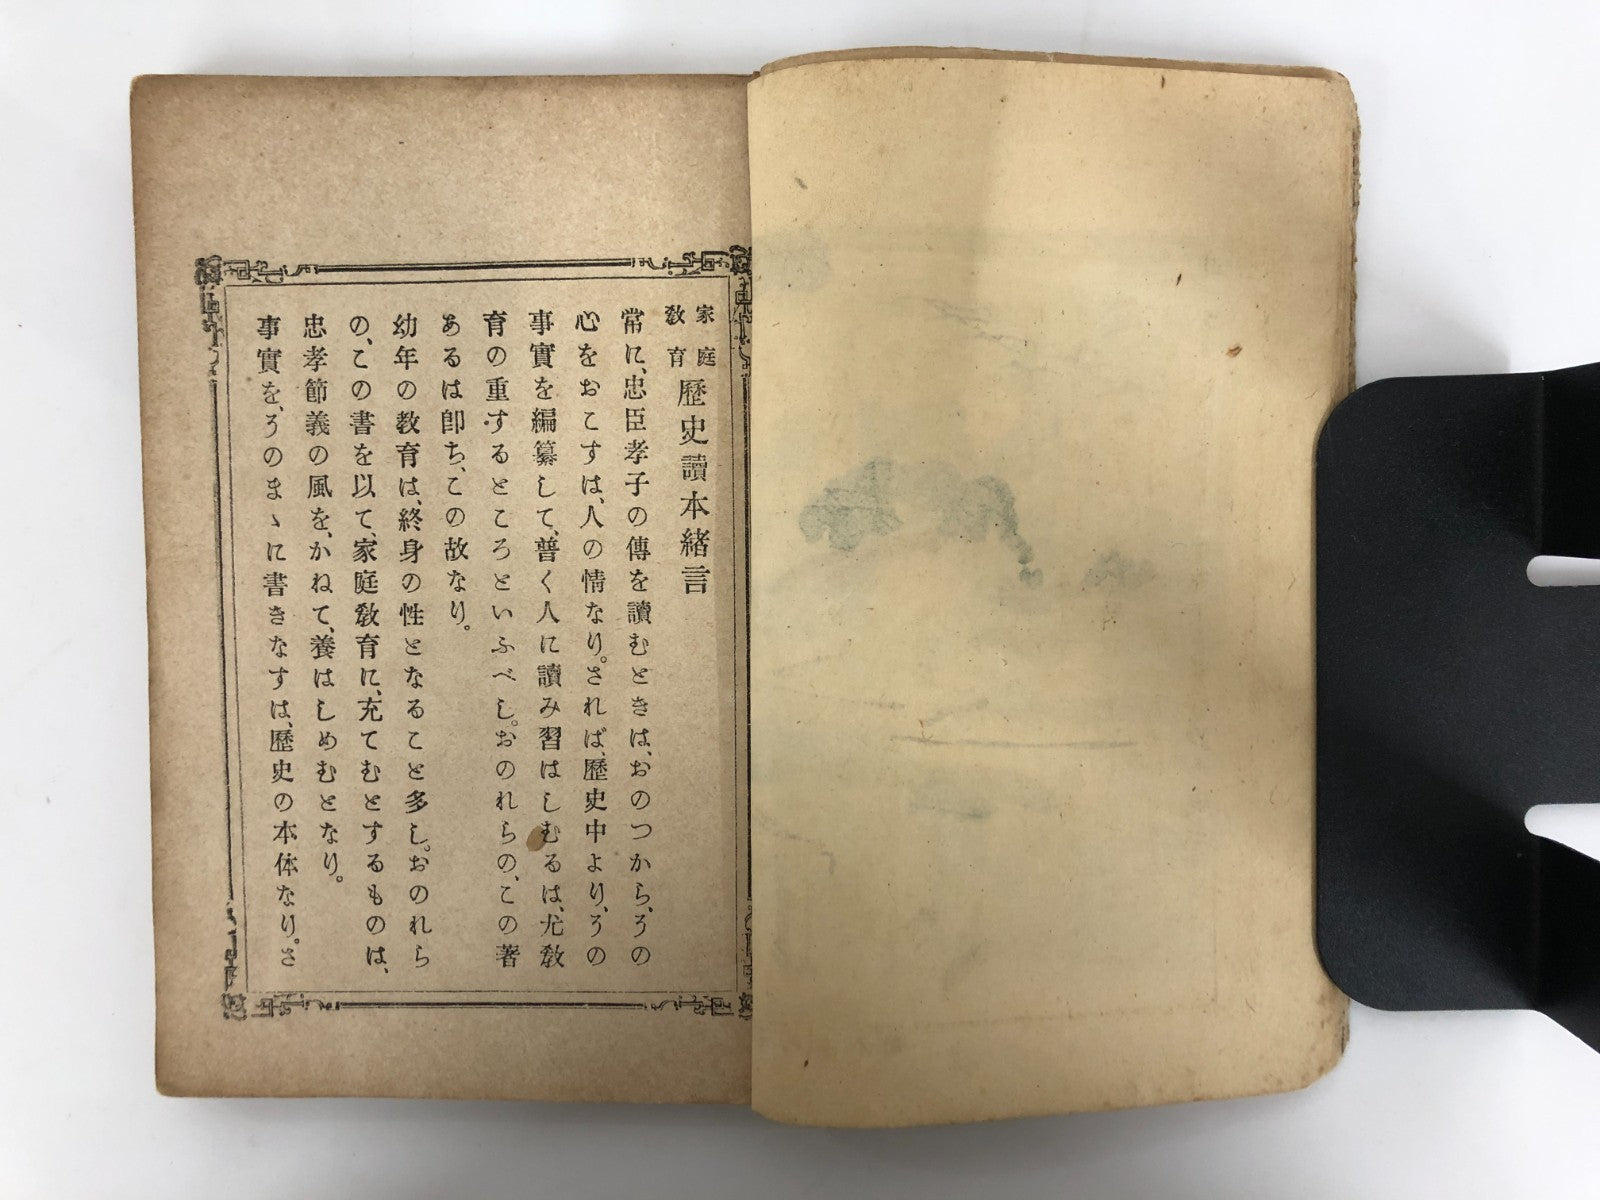 家庭教育歷史讀本緖言
常に、忠臣孝子の傳を讀むときは、おのつから、その
心をおこすは、人の情なり。されば、歷史中より、その
事實を編纂して、普く人に讀み習はしむるは、尤敎
育の重するところといふべし。おのれらの、この著
あるは卽ち、この故なり。
幼年の敎育は、終身の性となること多し。おのれら
の、この書を以て、家庭敎育に、充てむとするものは、
忠孝節義の風を、かねて、養はしめむとなり。
事實を、そのまゝに書きなすは、歷史の本体なり。さ